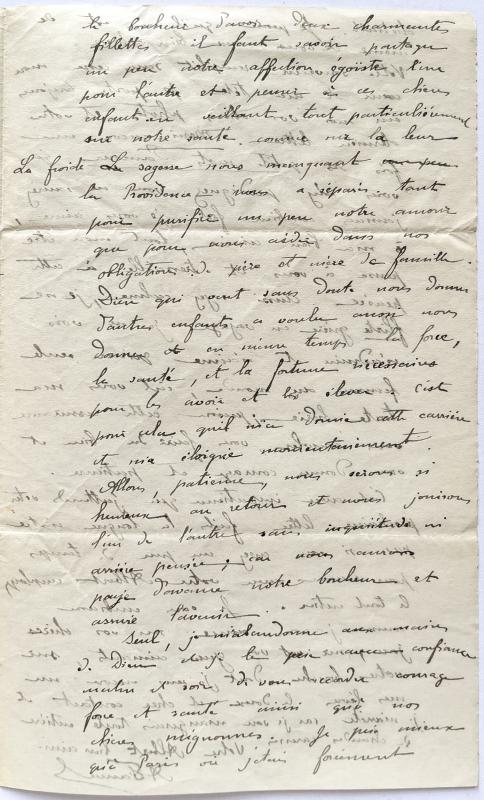 le bonheur d'avoir deux charmantes
fillettes il faut savoir partager
un peu notre affection égoïste l'un
pour l'autre et penser à ces chères
enfants en veillant tout particulièrement
sur notre santé comme sur la leur
La froide sagesse nous manquant
la Providence nous a séparés tant
pour purifier un peu notre amour
que pour nous aider dans nos
obligations de père et mère de famille.
Dieu qui veut sans doute nous donner
d'autres enfants a voulu aussi nous
donner et en même temps la force,
la santé, et la fortune nécessaires
pour les avoir et les élever c'est
pour cela qu'il m'a donné cette carrière
et m'a éloigné momentanément.
Allons, patience, nous serons si
heureux au retour et nous jouirons
l'un de l'autre sans inquiétude ni
arrière pensée, car nous aurons
payé d'avance notre bonheur et
assuré l'avenir.
Seul, je m'abandonne aux mains
de Dieu et je le prie avec confiance
matin et soir de vous accorder courage
force et santé ainsi que nos
chères mignonnes. Je prie mieux
qu'à Paris où j'étais forcément